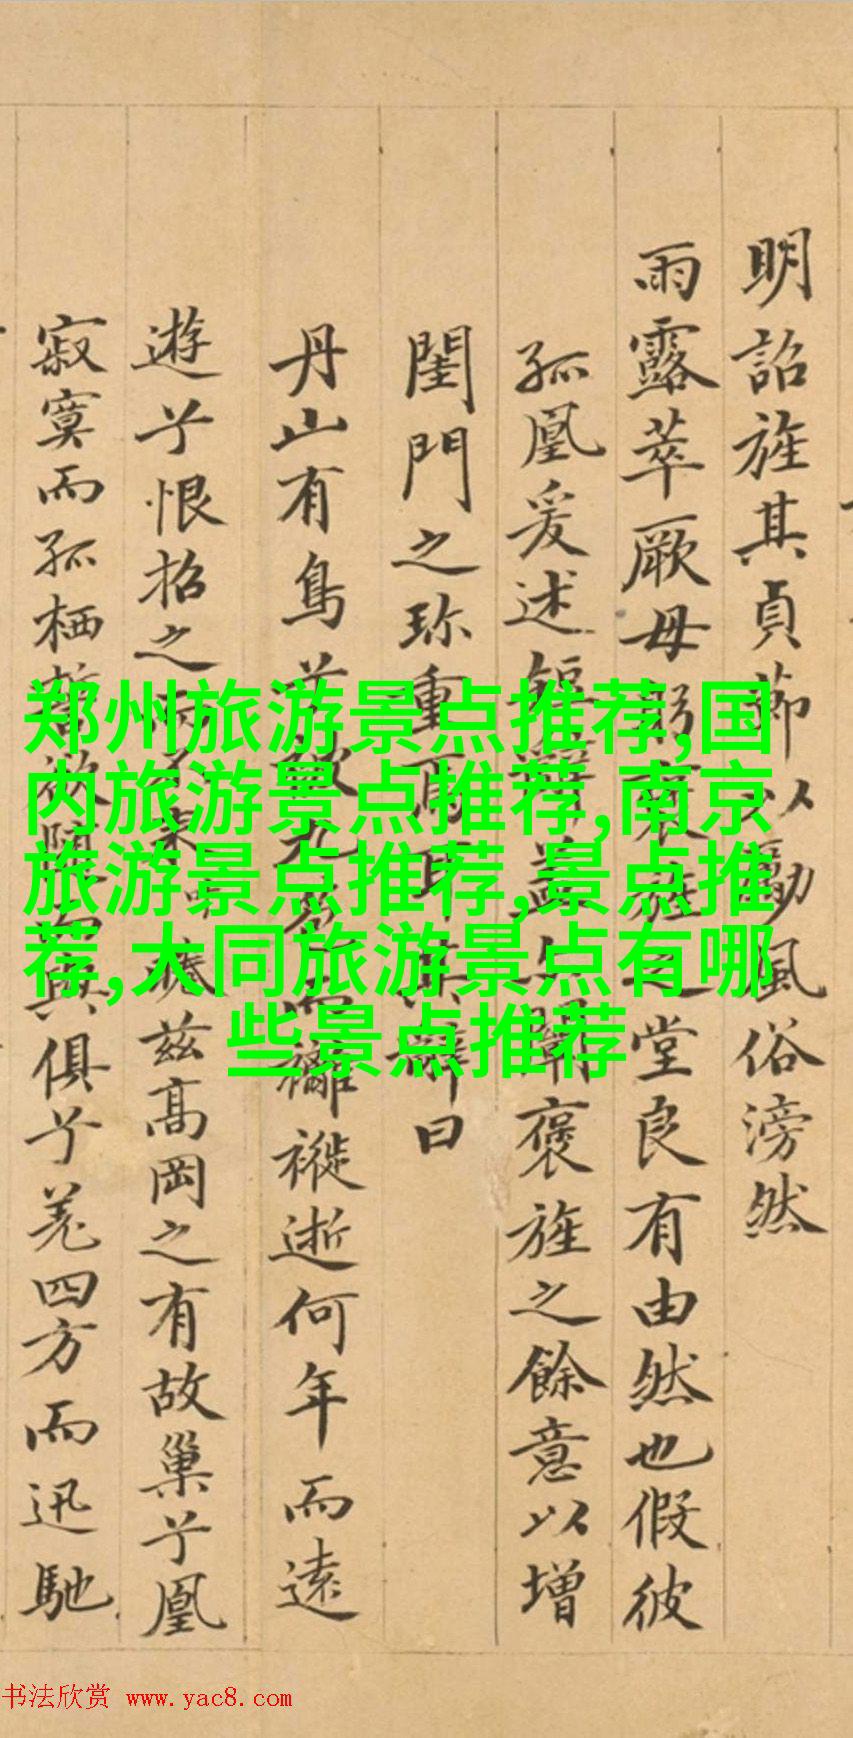 明詔旌其貞莭以風俗滂然
雨露萃厥母躬之堂良有由然也假彼
孤凰爰述闡褒旌之餘意以增
閨門之珎重焉耳其辭曰
丹山有鳥兮褷逝何年而遠
遊兮恨招之兹高岡之有故巢兮凰
寂寞而孤栖誓欲與俱兮羗四方而迅馳
郑州旅游景点推荐,国
内旅游景点推荐,南京
旅游景点推荐,景点推
荐,大同旅游景点有哪
些景点推荐
书法欣赏 www.yac8.com